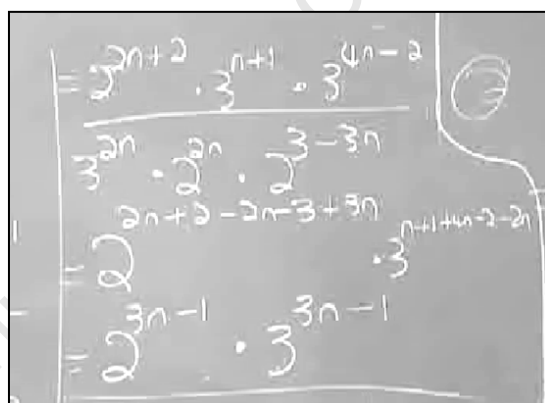 = 2^{2n+2} · 3^{n+1} · 3^{4n-2}
3^{2n} · 2^{2n} · 2^{3-3n}
= 2^{2n+2-2n-3+3n} · 3^{n+1+4n-2-2n}
= 2^{3n-1} · 3^{3n-1}